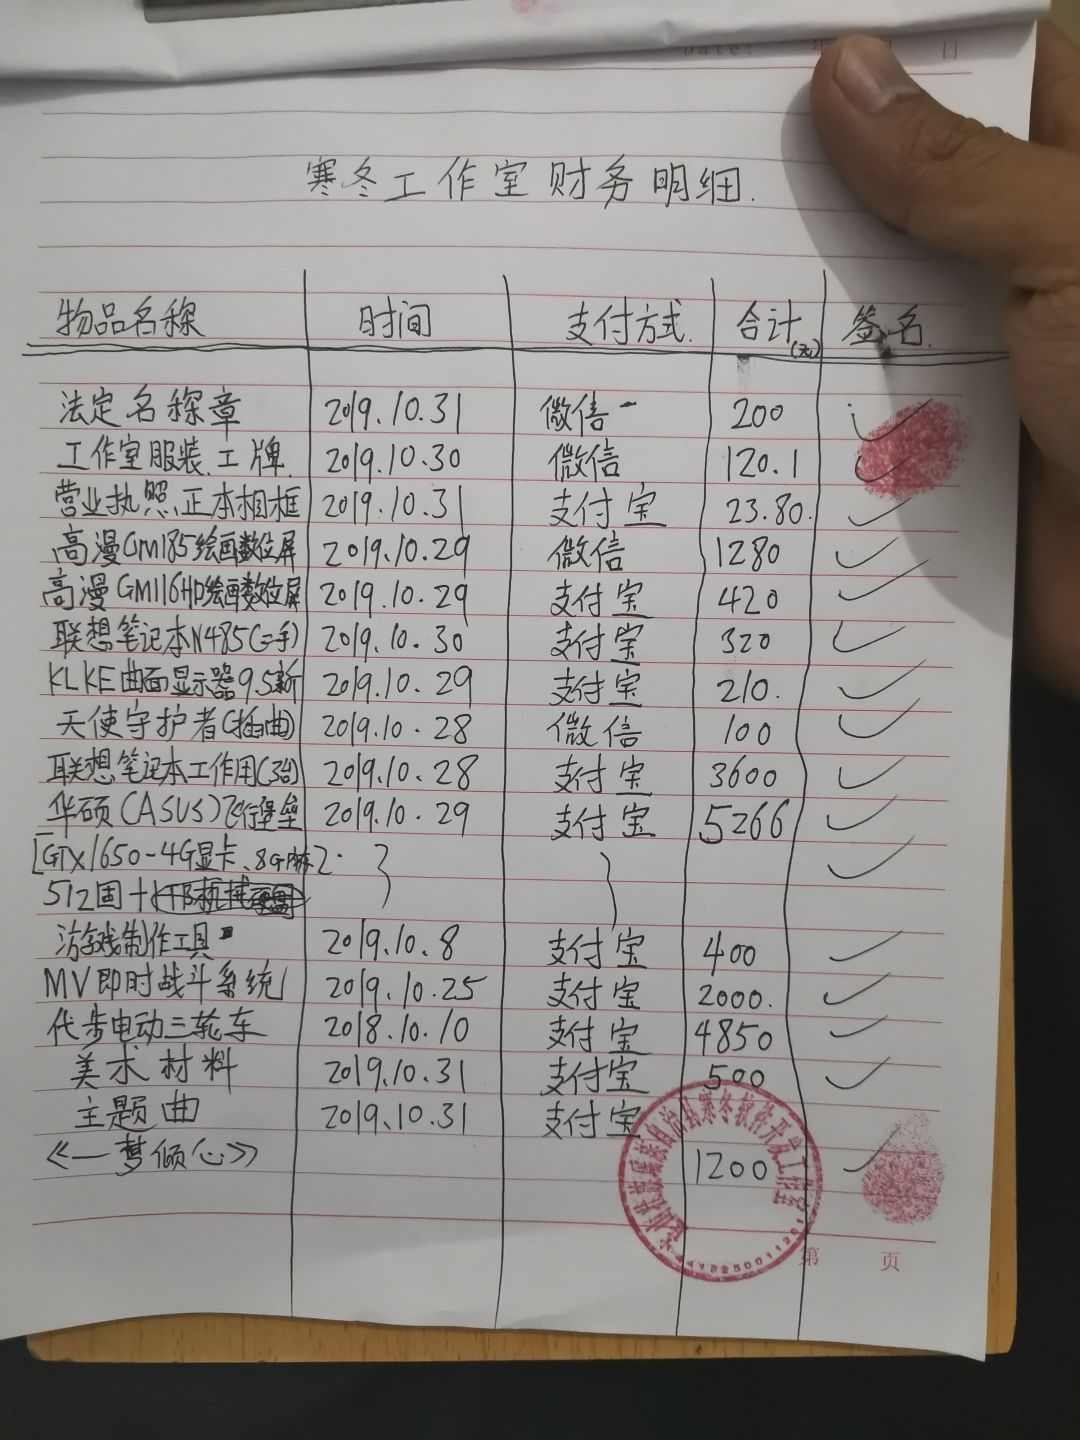 Date: 年 日
寒冬工作室财务明细.
物品名称 时间 支付方式. 合计(元) 签名.
法定名称章 2019.10.31 微信- 200
工作室服装.工牌. 2019.10.30 微信 120.1
营业执照.正本相框 2019.10.31 支付宝 23.80.
高漫GM185绘画数位屏 2019.10.29 微信 1280
高漫GM116HD绘画数位屏 2019.10.29 支付宝 420
联想笔记本N485(二手) 2019.10.30 支付宝 320
KLKE曲面显示器9.5新 2019.10.29 支付宝 210.
天使守护者(插曲) 2019.10.28 微信 100
联想笔记本工作用(3台) 2019.10.28 支付宝 3600
华硕(ASUS)飞行堡垒 2019.10.29 支付宝 5266
[GTX1650-4G显卡、8G内存]
512固+
游戏制作工具 2019.10.8 支付宝 400
MV即时战斗系统 2019.10.25 支付宝 2000.
代步电动三轮车 2018.10.10 支付宝 4850
美术材料 2019.10.31 支付宝 500
主题曲 2019.10.31 支付宝
《一梦倾心》 1200
自治县寒冬软件开发工作室
第 页